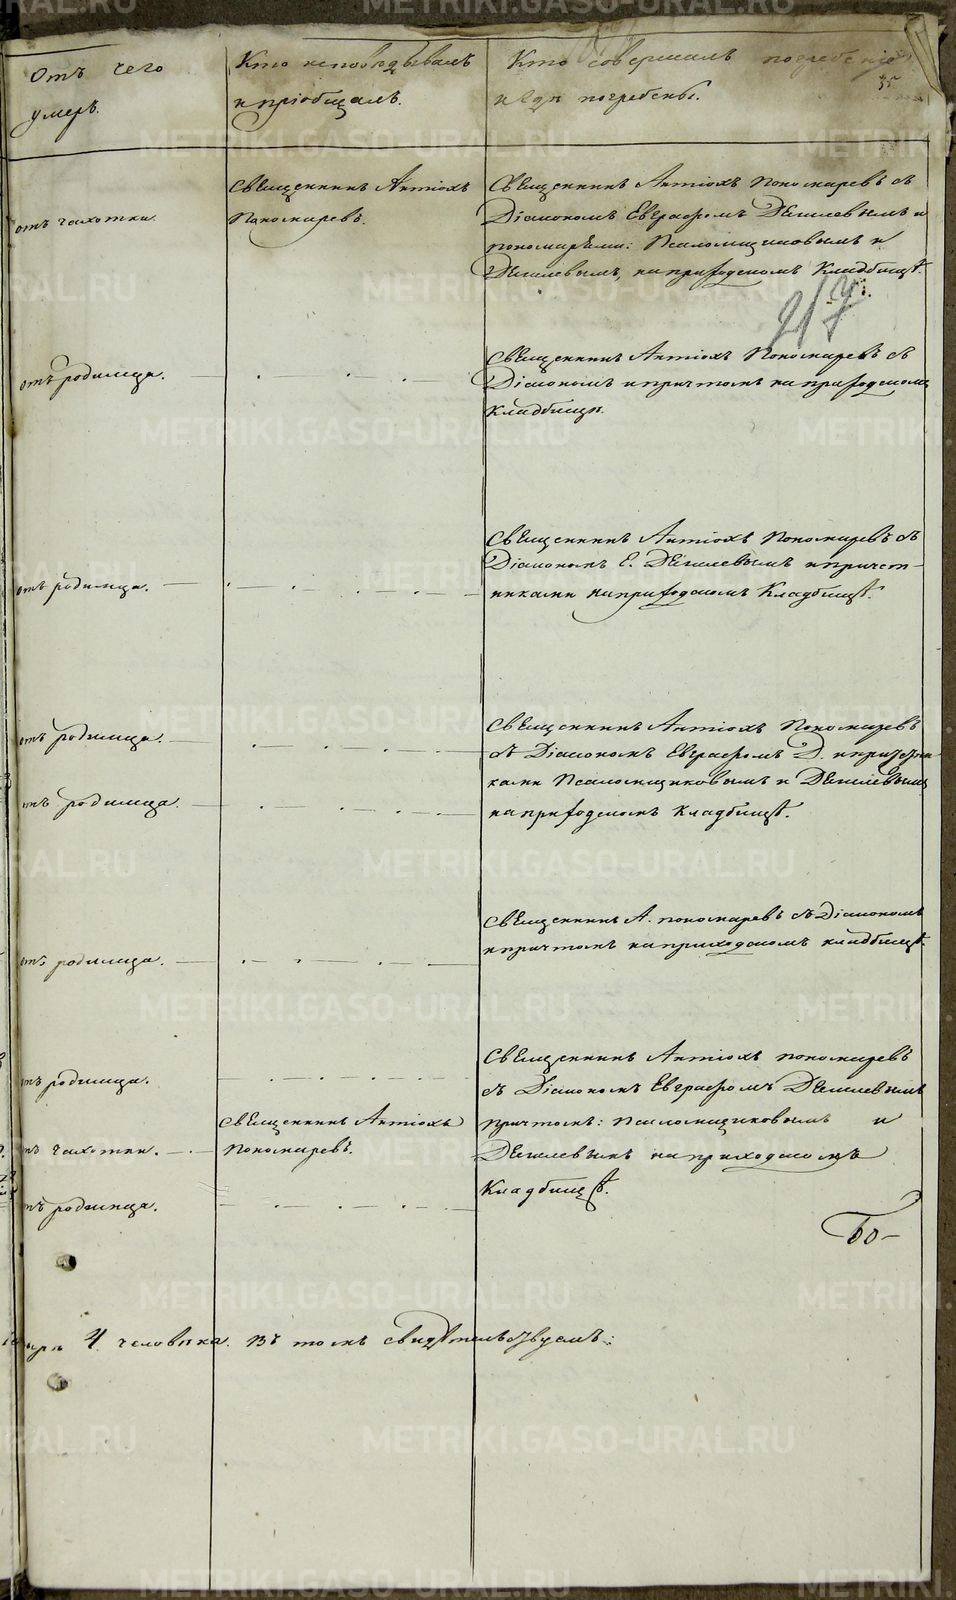 Отъ чего
умеръ.
Кто исповѣдывалъ
и пріобщалъ.
Кто совершалъ погребеніе
и гдѣ погребены.
35
отъ чахотки.
Священникъ Антіохъ
Пономаревъ.
Священникъ Антіохъ Пономаревъ съ
Діакономъ Евграфомъ Дягилевымъ и
пономарями: Псаломщиковымъ и
Дягилевымъ, на приходскомъ Кладбищѣ.
217
отъ родимца.
Священникъ Антіохъ Пономаревъ съ
Діакономъ и причтомъ на приходскомъ
Кладбищѣ.
отъ родимца.
Священникъ Антіохъ Пономаревъ съ
Діакономъ Е. Дягилевымъ и причет-
никами на приходскомъ Кладбищѣ.
отъ родимца.
отъ родимца.
Священникъ Антіохъ Пономаревъ
съ Діакономъ Евграфомъ Д. и причетни
ками Псаломщиковымъ и Дягилевымъ
на приходскомъ Кладбищѣ.
отъ родимца.
Священникъ А. Пономаревъ съ Діакономъ
и причтомъ на приходскомъ кладбищѣ.
отъ родимца.
отъ чахотки.
Священникъ Антіохъ
Пономаревъ.
отъ родимца.
Священникъ Антіохъ Пономаревъ
съ Діакономъ Евграфомъ Дягилевымъ
причтомъ: Псаломщиковымъ и
Дягилевымъ на приходскомъ
Кладбищѣ.
Бо-
4 человѣка. Въ томъ свидѣтельствуемъ:
METRIKI.GASO-URAL.RU